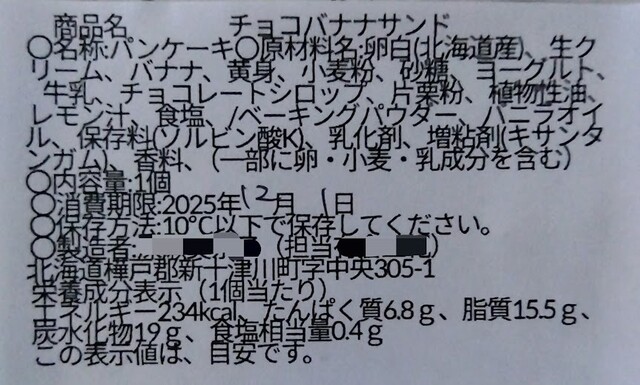 商品名 チョコバナナサンド
〇名称:パンケーキ〇原材料名:卵白(北海道産)、生ク
リーム、バナナ、黄身、小麦粉、砂糖、ヨーグルト、
牛乳、チョコレートシロップ、片栗粉、植物性油、
レモン汁、食塩、/ベーキングパウダー、バニラオイ
ル、保存料(ソルビン酸K)、乳化剤、増粘剤(キサンタ
ンガム)、香料、(一部に卵・小麦・乳成分を含む)
〇内容量:1個
〇消費期限:2025年12月1日
〇保存方法:10℃以下で保存してください。
〇製造者: (担当 )
北海道樺戸郡新十津川町字中央305-1
栄養成分表示(1個当たり)
エネルギー234kcal、たんぱく質6.8g、脂質15.5g、
炭水化物19g、食塩相当量0.4g
この表示値は、目安です。